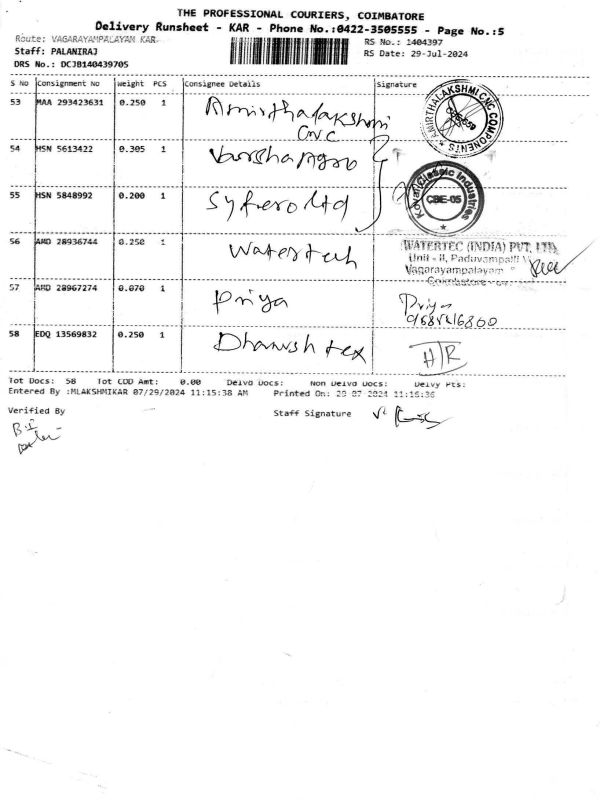 THE PROFESSIONAL COURIERS, COIMBATORE
Delivery Runsheet - KAR - Phone No.:0422-3505555 - Page No.:5
Route: VAGARAYAMPALAYAM KAR
RS No.: 1404397
Staff: PALANIRAJ
RS Date: 29-Jul-2024
DRS No.: DCJB140439705
S No Consignment No Weight PCS Consignee Details Signature
53 MAA 293423631 0.250 1 Amirthalakshmi CNC
AMIRTHALAKSHMI CNC COMPONENTS
CBE-659
54 HSN 5613422 0.305 1 Varsha Agro
55 HSN 5848992 0.200 1
Kovai Classic Industries
CBE-05
56 AMD 28936744 0.250 1 Watertech
WATERTEC (INDIA) PVT. LTD.
Unit - II, Paduvampalli
Vagarayampalayam
Coimbatore
57 AMD 28967274 0.070 1 Priya Priya
58 EDQ 13569832 0.250 1 Dhanush tex
Tot Docs: 58 Tot COD Amt: 0.00 Delvd Docs: Non Delvd Docs: Delvy Pts:
Entered By :MLAKSHMIKAR 07/29/2024 11:15:38 AM Printed On: 29-07-2024 11:16:36
Verified By
Staff Signature